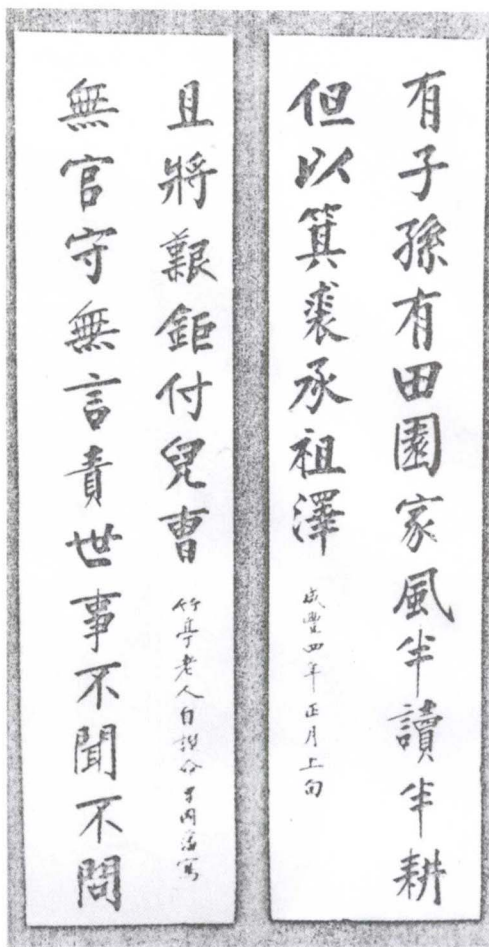 有子孫有田園家風半讀半耕
但以箕裘承祖澤
咸豐四年正月上旬
無官守無言責世事不聞不問
且將艱鉅付兒曹
竹亭老人自譔命子國藩寫